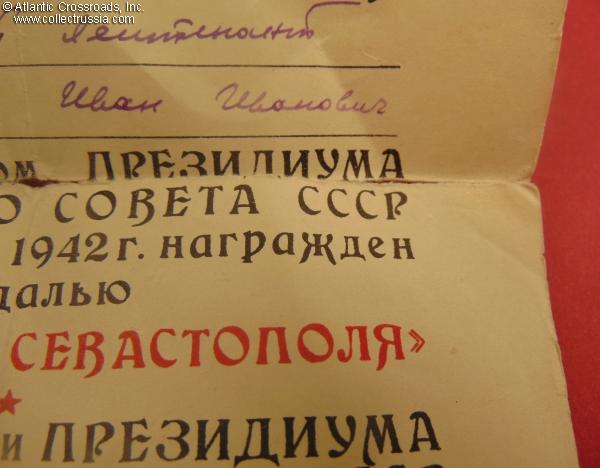 © Atlantic Crossroads, Inc.
www.collectrussia.com
лейтенант
Иван Иванович
ом ПРЕЗИДИУМА
О СОВЕТА СССР
1942 г. награжден
далью
СЕВАСТОПОЛЯ»
и ПРЕЗИДИУМА